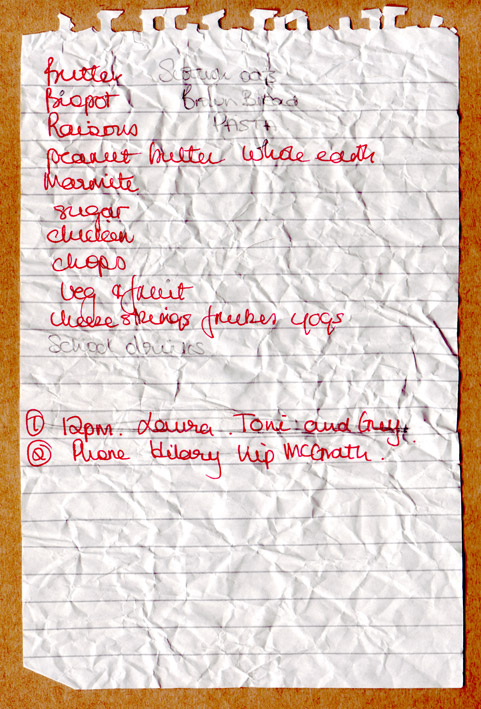 butter
Biopot Brown Bread
Raisons PASTA
peanut butter whole earth
Marmite
sugar
chicken
chops
Veg & fruit
cheese strings frubes yogs
School drinks
① 12pm. Laura. Toni and Grey.
② Phone Hilary Kip McGrath.